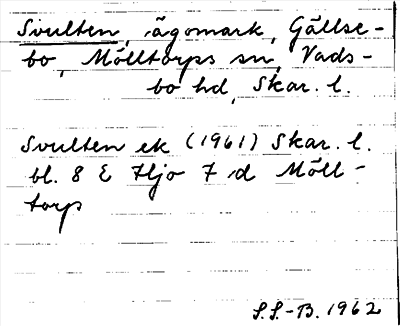 Svulten, ägomark, Gällse-
bo, Mölltorps sn, Vads-
bo hd, Skar. l.
Svulten ek (1961) Skar. l.
bl. 8 E Hjo 7 d Möll-
torp
S.S.-B. 1962